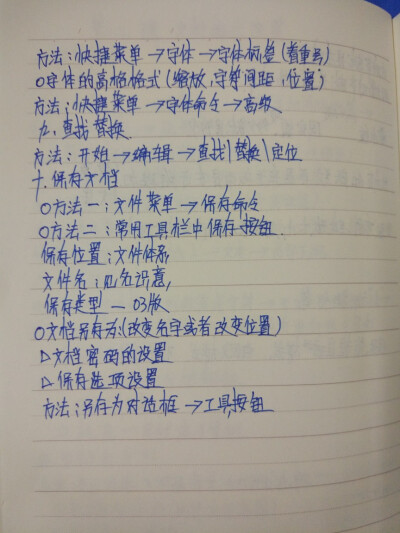 方法：快捷菜单→字体→字体标签(着重号)
○字体的高格格式(缩放，字符间距，位置)
方法：快捷菜单→字体命令→高级
九、查找替换
方法：开始→编辑→查找\替换\定位
十、保存文档
○方法一：文件菜单→保存命令
○方法二：常用工具栏中保存按钮.
保存位置：文件体系
文件名：见名识意,
保存类型—03版
○文档另存为(改变名字或者改变位置)
▷文档密码的设置
▷保存选项设置
方法：另存为对话框→工具按钮